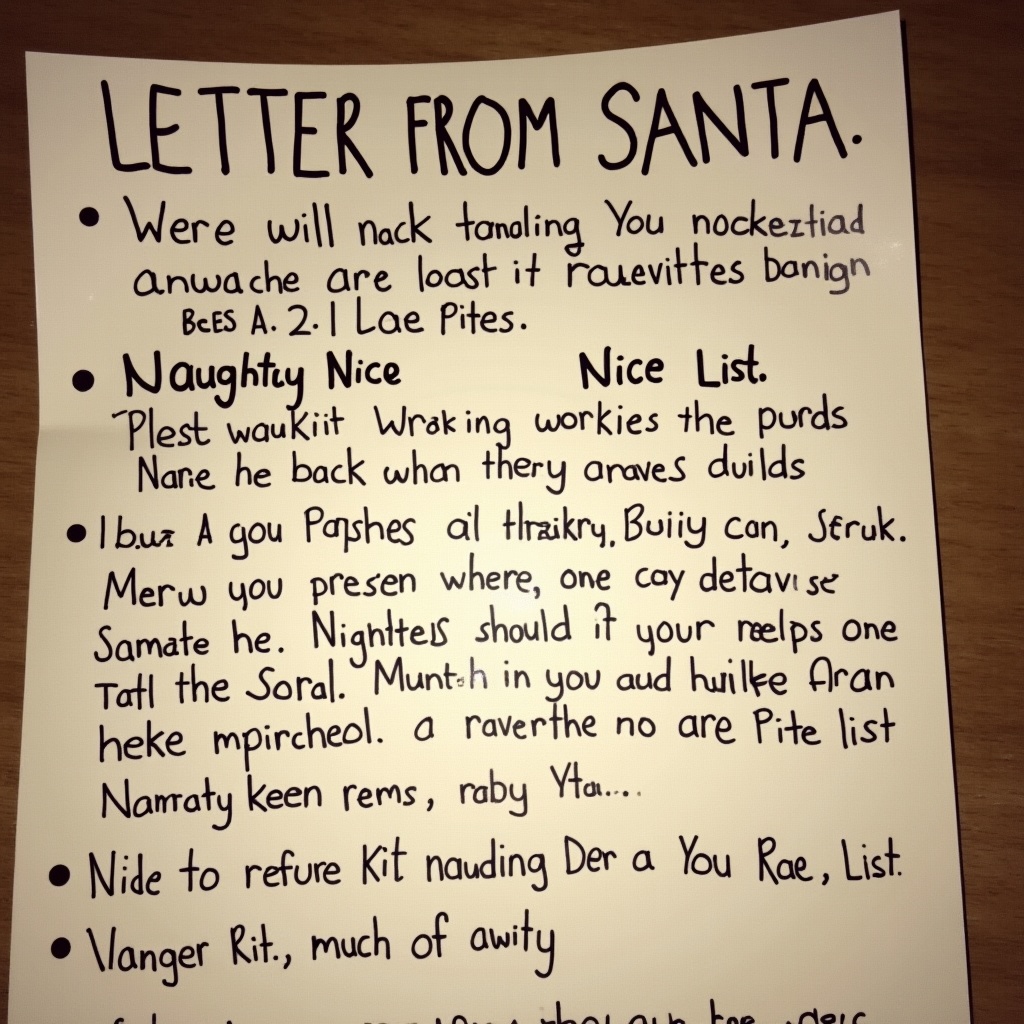 LETTER FROM SANTA.
• Were will nack tanoling You nockeztiad
anwache are loast it rauevittes banign
BcES A. 2. I Lae Pites.
• Naughtcy Nice Nice List.
Plest waukiit Wrak ing workies the purds
Nare he back whan thery anaves duilds
• I buz A gou Papshes ail Hraikry, Buiiy can, Struk.
Merw you presen where, one cay detavi se
Samate he. Nighttels should it your reelps one
Tatl the Soral. Munt-h in you aud huilke Aran
heke mpircheol. a raverthe no are Pite list
Namraty keen rems, raby Yta....
• Nide to refure Kit nauding Der a You Rae, List.
• Vanger Rit., much of awity